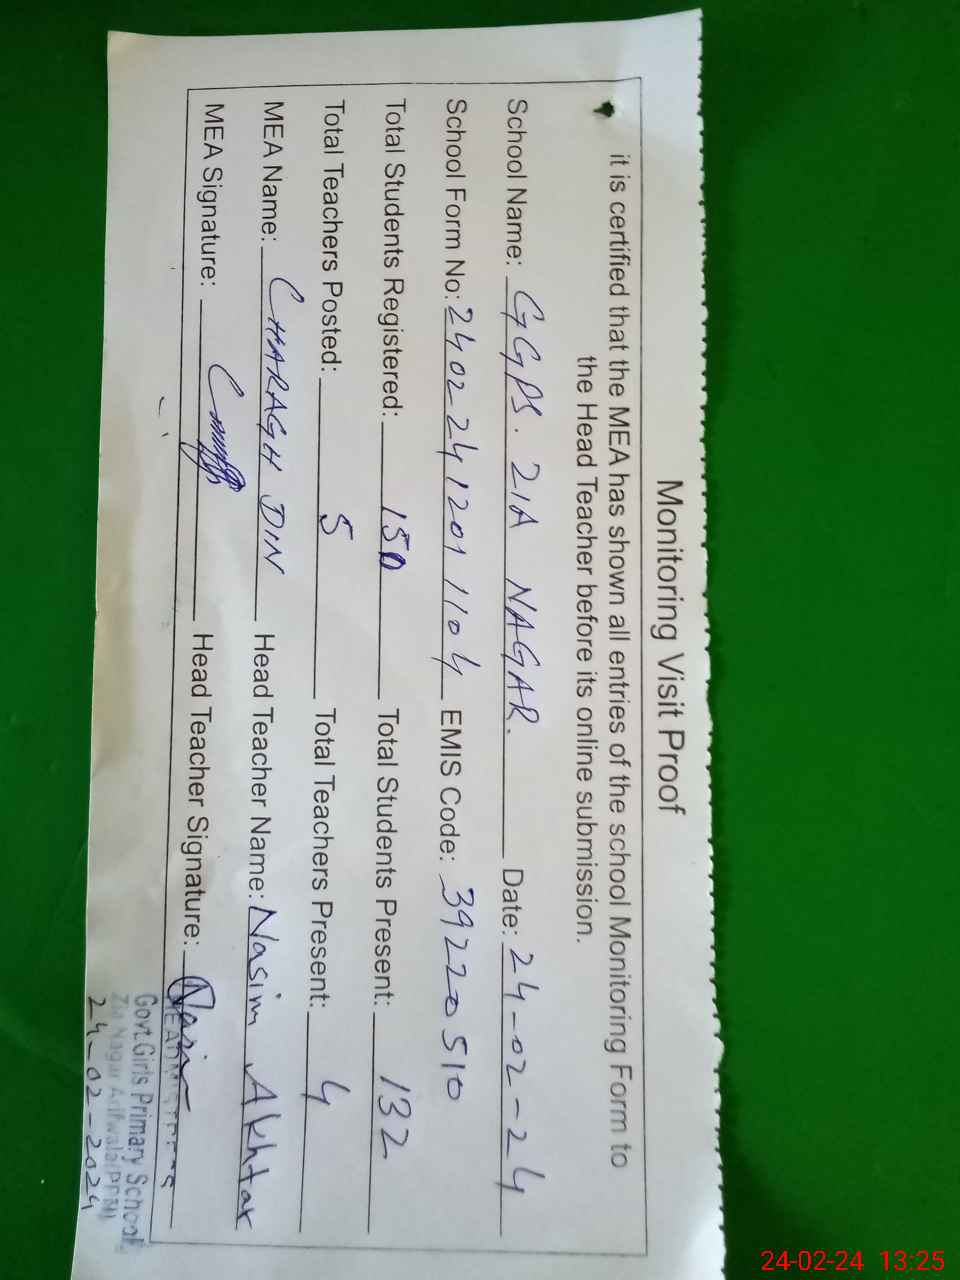 Monitoring Visit Proof
it is certified that the MEA has shown all entries of the school Monitoring Form to
the Head Teacher before its online submission.
School Name: GGPS. ZIA NAGAR. Date: 24-02-24
School Form No: 2402241201104 EMIS Code: 39220510
Total Students Registered: 150 Total Students Present: 132
Total Teachers Posted: 5 Total Teachers Present: 4
MEA Name: CHARAGH DIN Head Teacher Name: Nasim Akhtar
MEA Signature: Head Teacher Signature: Nasim
HEADMISTRESS
Govt. Girls Primary School
Zia Nagar Arifwala (PPN)
24-02-2024
24-02-24 13:25